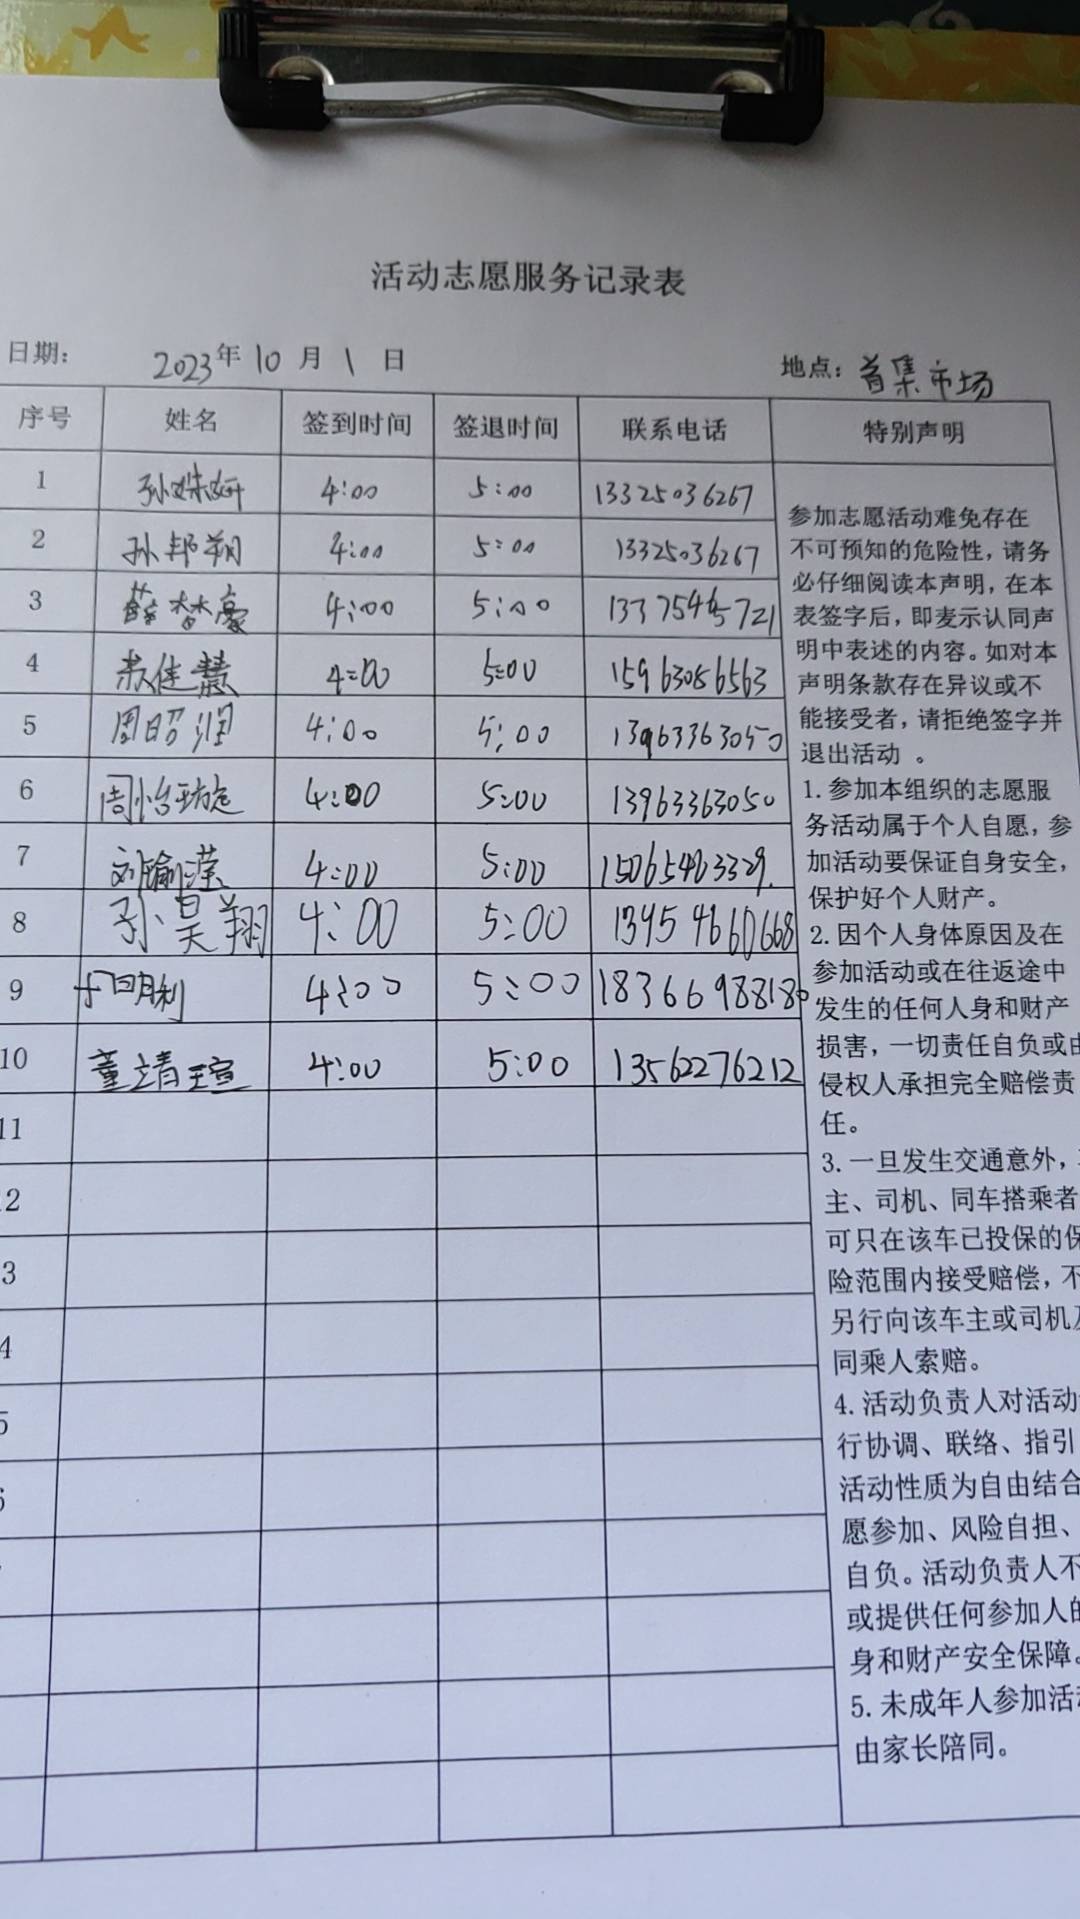 活动志愿服务记录表
日期： 2023年 10 月 1 日 地点：首集市场
序号 姓名 签到时间 签退时间 联系电话 特别声明
1 孙姝妍 4:00 5:00 13325036267
2 孙邦翔 4:00 5:00 13325036267
3 4:00 5:00 13375465721
4 佳慧 4:00 5:00 15963056563
5 周昭润 4:00 5:00 13963363050
6 周怡璇 4:00 5:00 13963363050
7 刘瑜滢 4:00 5:00 15065463329
8 孙昊翔 4:00 5:00 13954660668
9 明利 4:00 5:00 18366988180
10 董靖瑄 4:00 5:00 13562276212
11
2
3
4
5
6
参加志愿活动难免存在
不可预知的危险性，请务
必仔细阅读本声明，在本
表签字后，即麦示认同声
明中表述的内容。如对本
声明条款存在异议或不
能接受者，请拒绝签字并
退出活动 。
1. 参加本组织的志愿服
务活动属于个人自愿，参
加活动要保证自身安全，
保护好个人财产。
2. 因个人身体原因及在
参加活动或在往返途中
发生的任何人身和财产
损害，一切责任自负或由
侵权人承担完全赔偿责
任。
3. 一旦发生交通意外，
主、司机、同车搭乘者
可只在该车已投保的保
险范围内接受赔偿，不
另行向该车主或司机及
同乘人索赔。
4. 活动负责人对活动
行协调、联络、指引
活动性质为自由结合
愿参加、风险自担、
自负。活动负责人不
或提供任何参加人的
身和财产安全保障。
5. 未成年人参加活动
由家长陪同。